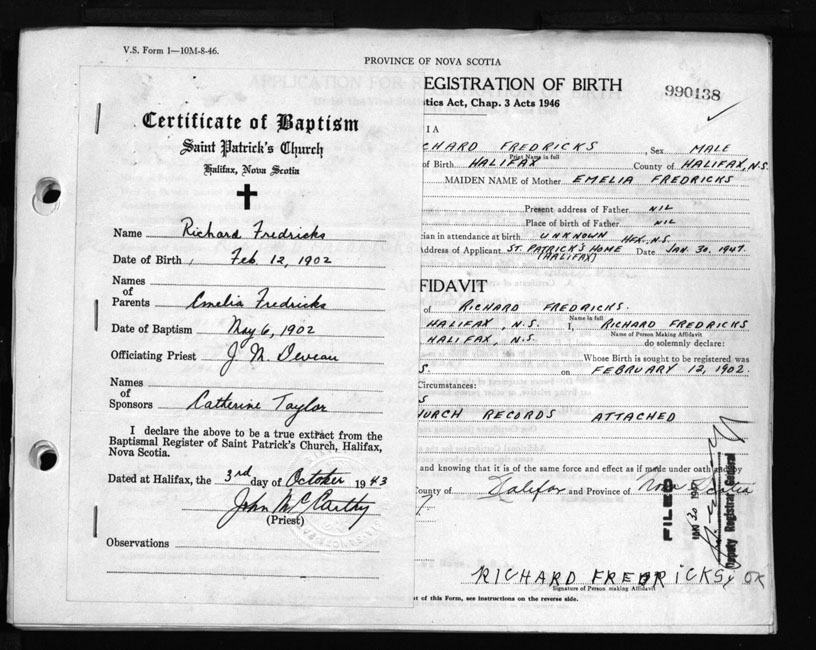 V.S. Form 1—10M-8-46.
PROVINCE OF NOVA SCOTIA
Certificate of Baptism
Saint Patrick's Church
Halifax, Nova Scotia
Name Richard Fredricks
Date of Birth Feb. 12, 1902
Names
of
Parents Emelia Fredricks
Date of Baptism May 6, 1902
Officiating Priest J. M. Deveau
Names
of
Sponsors Catherine Taylor
I declare the above to be a true extract from the
Baptismal Register of Saint Patrick's Church, Halifax,
Nova Scotia.
Dated at Halifax, the 3rd day of October 1943
John McCarthy
(Priest)
Observations
EGISTRATION OF BIRTH
990138
tics Act, Chap. 3 Acts 1946
IA
CHARD FREDRICKS, Sex MALE
Print Name in full
of Birth HALIFAX County of HALIFAX, N.S.
MAIDEN NAME of Mother EMELIA FREDRICKS
Present address of Father NIL
Place of birth of Father NIL
ian in attendance at birth UNKNOWN
Address of Applicant ST. PATRICK'S HOME HFX., N.S. Date JAN. 30, 1947.
(HALIFAX)
FFIDAVIT
of RICHARD FREDRICKS.
Name in full
HALIFAX, N.S. I, RICHARD FREDRICKS
Name of Person Making Affidavit
HALIFAX, N.S. do solemnly declare:
Whose Birth is sought to be registered was
S. on FEBRUARY 12, 1902.
Circumstances:
S
HURCH RECORDS ATTACHED
and knowing that it is of the same force and effect as if made under oath and by
County of Halifax and Province of Nova Scotia
7.
FILED
JAN 30 1947
Deputy Registrar General
RICHARD FREDRICKS OK
Signature of Person making Affidavit
of this Form, see instructions on the reverse side.